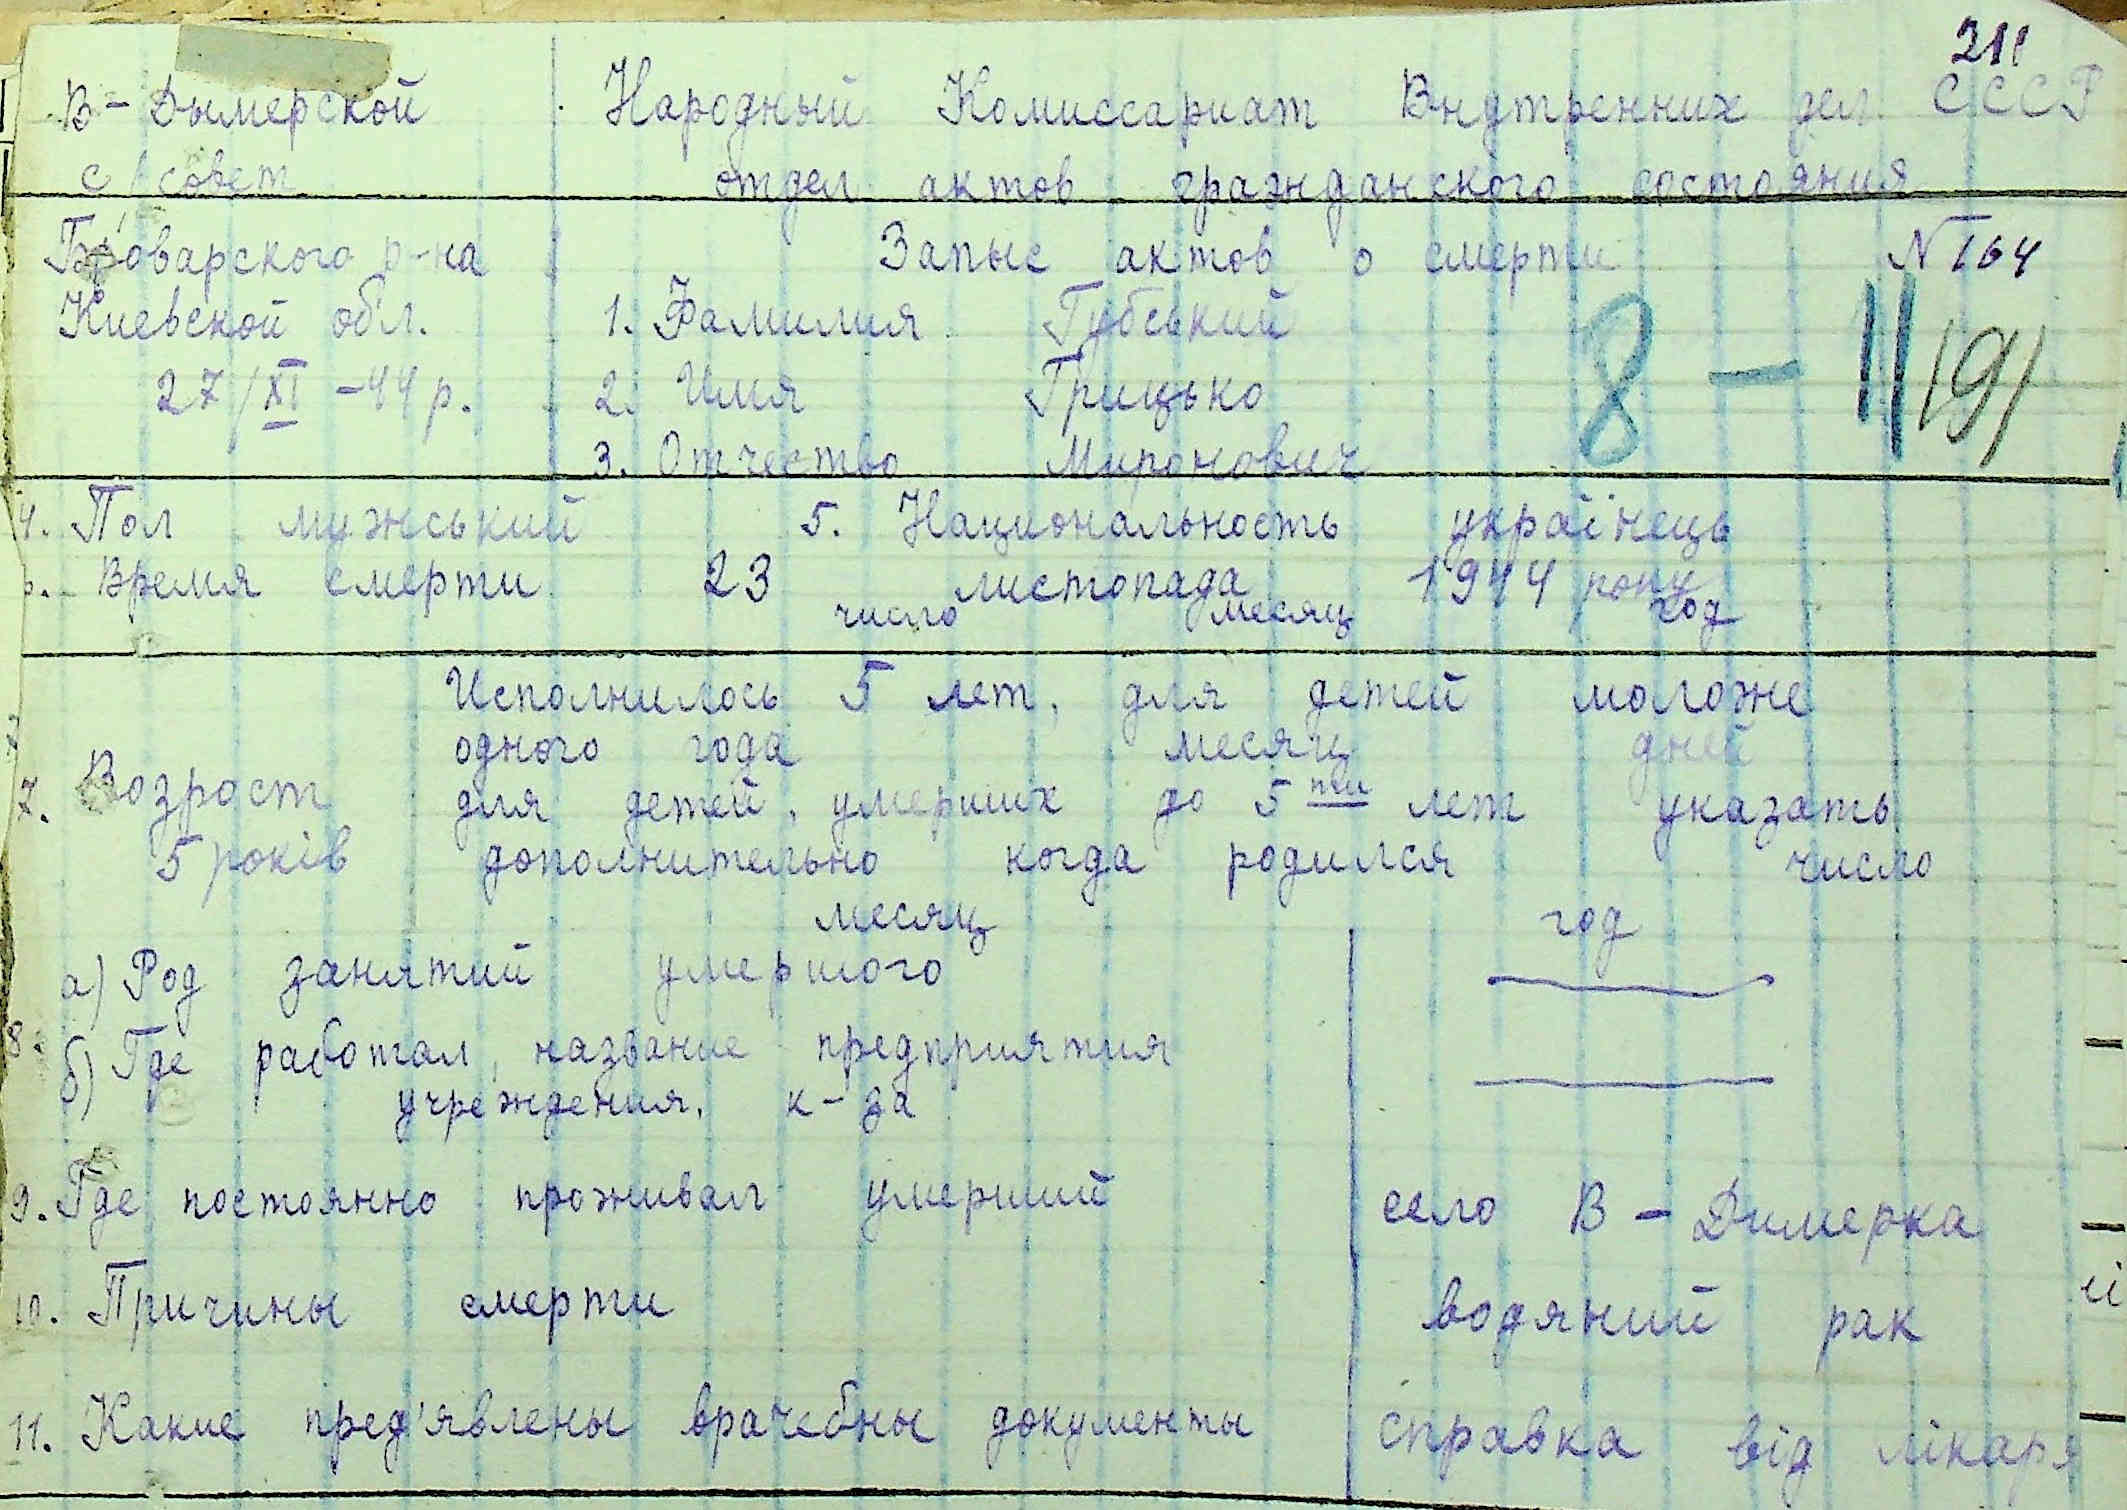 211
В-Дымерской Народный Комиссариат Внутренних дел СССР
с/совет отдел актов гражданского состояния
Броварского р-на Запыс актов о смерти N 164
Киевской обл. 1. Фамилия Губський
8 - 11 191
27/XI -44 р. 2. Имя Грицько
3. Отчество Миронович
4. Пол мужський 5. Национальность українець
6. Время смерти 23 листопада 1944 року
число месяц год
Исполнилось 5 лет, для детей моложе
одного года месяц дней
7. Возраст для детей, умерших до 5 ти лет указать
5 років дополнительно когда родился число
месяц год
а) Род занятий умершого
8. б) Где работал, название предприятия
учреждения, к-за
9. Где постоянно проживал умерший село В-Димерка
10. Причины смерти водяний рак
11. Какие пред'явлены врачебны документы справка від лікаря